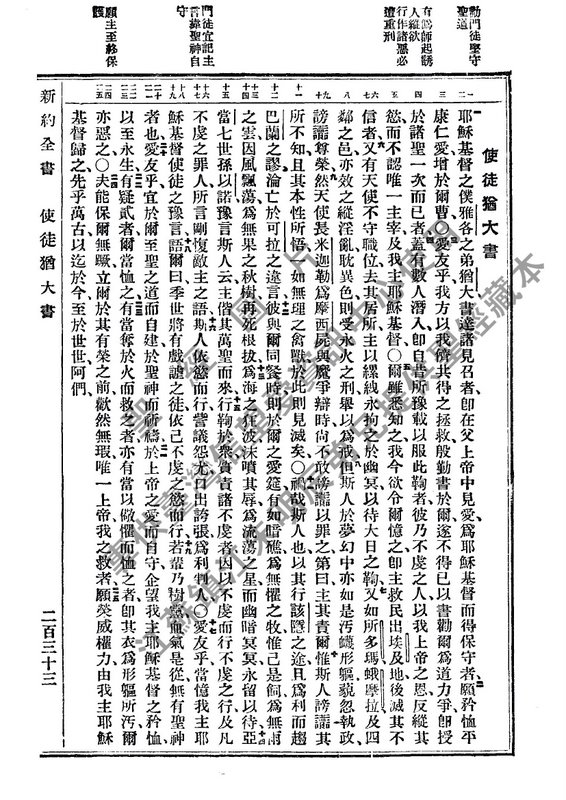 勸門徒堅守
聖道
有爲師起誘
人縱欲
行作諸惡必
遭重刑
門徒宜記主
言緯聖神自
守
願主至終保
護
使徒猶大書
耶穌基督之僕雅各之弟猶大書達諸見召者卽在父上帝中見愛爲耶穌基督而得保守者願矜恤平
康仁愛增於爾曹○愛友乎我方以我儕共得之拯救殷勤書於爾遂不得已以書勸爾爲道力爭卽授
於諸聖一次而已者蓋有數人潛入卽自昔所豫載以服此鞫者彼乃不虔之人以我上帝之恩反縱其
慾而不認唯一主宰及我主耶穌基督○爾雖悉知之我今欲令爾憶之卽主救民出埃及地後滅其不
信者又有天使不守職位去其居所主以縲絏永拘之於幽冥以待大日之鞫又如所多瑪蛾摩拉及四
鄰之邑亦效之縱淫亂耽異色則受永火之刑舉以爲戒但斯人於夢幻中亦如是污衊形軀藐忽執政
謗讟尊榮然天使長米迦勒爲摩西屍與魔爭辯時尚不敢謗讟以罪之第曰主其責爾惟斯人謗讟其
所不知且其本性所悟一如無理之禽獸於此則見滅矣○禍哉斯人也以其行該隱之途且爲利而趨
巴蘭之謬淪亡於可拉之違言彼與爾同餐時則於爾之愛筵有如暗礁爲無懼之牧惟己是飼爲無雨
之雲因風飄蕩爲無果之秋樹再死根拔爲海之狂波沫噴其辱爲流蕩之星而幽暗冥冥永留以待亞
當七世孫以諾豫言斯人云主偕其萬聖而來行鞫於衆責諸不虔者因以不虔而行不虔之行及凡
不虔之罪人所言剛愎敵主之語斯人依慾而行訾議怨尤口出誇張爲利判人○愛友乎當憶我主耶
穌基督使徒之豫言語爾曰季世將有戲謔之徒依己不虔之慾而行若輩乃樹黨血氣是從無有聖神
者也愛友乎宜於爾至聖之道而自建於聖神而祈禱於上帝之愛而自守企望我主耶穌基督之矜恤
以至永生有疑貳者爾當恤之有當奪於火而救之者亦有當以敬懼而恤之者卽其衣爲形軀所污爾
亦惡之○夫能保爾無蹶立爾於其有榮之前歡然無瑕唯一上帝我之救者願榮威權力由我主耶穌
基督歸之先乎萬古以迄於今至於世世阿們
新約全書 使徒猶大書 二百三十三